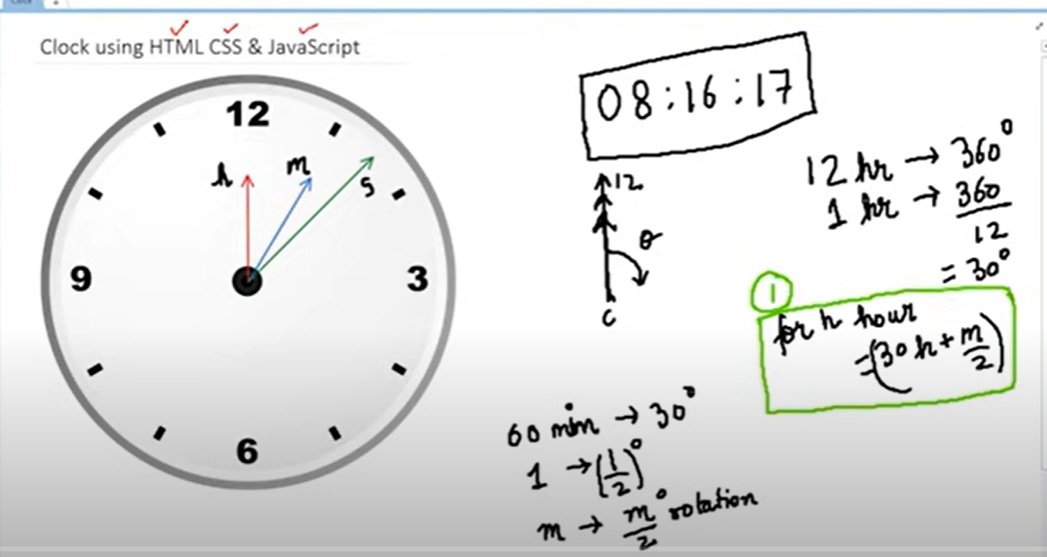 Clock using HTML CSS & JavaScript
12
3
6
9
h
m
s
08:16:17
12
θ
C
12 hr → 360°
1 hr → 360/12
= 30°
1
for h hour
= (30 h + m/2)
60 min → 30°
1 → (1/2)°
m → m°/2 rotation